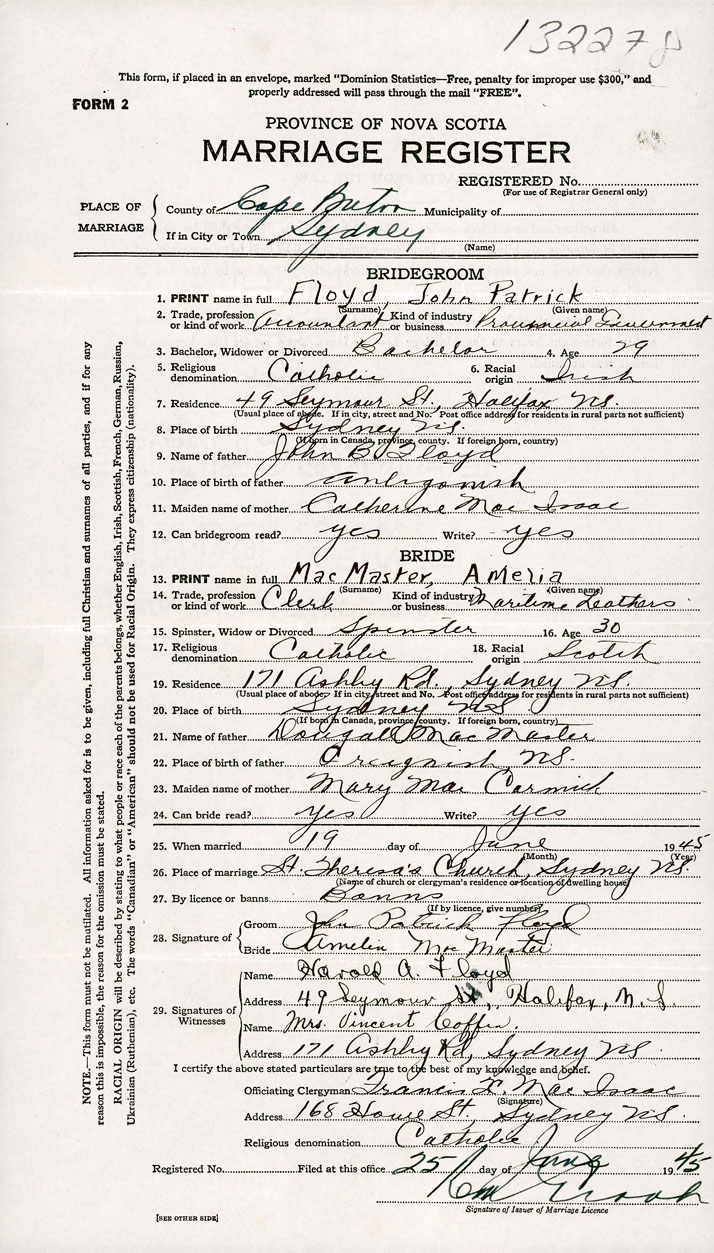 13227
This form, if placed in an envelope, marked "Dominion Statistics—Free, penalty for improper use $300," and
properly addressed will pass through the mail "FREE".
FORM 2
PROVINCE OF NOVA SCOTIA
MARRIAGE REGISTER
REGISTERED No.
(For use of Registrar General only)
PLACE OF MARRIAGE
County of Cape Breton Municipality of
If in City or Town Sydney
(Name)
BRIDEGROOM
1. PRINT name in full Floyd, John Patrick
(Surname) (Given name)
2. Trade, profession or kind of work Accountant Kind of industry or business Provincial Government
3. Bachelor, Widower or Divorced Bachelor 4. Age 29
5. Religious denomination Catholic 6. Racial origin Irish
7. Residence 49 Seymour St., Halifax N.S.
(Usual place of abode. If in city, street and No. Post office address for residents in rural parts not sufficient)
8. Place of birth Sydney N.S.
(If born in Canada, province, county. If foreign born, country)
9. Name of father John B. Floyd
10. Place of birth of father Antigonish
11. Maiden name of mother Catherine Mac Isaac
12. Can bridegroom read? yes Write? yes
BRIDE
13. PRINT name in full MacMaster, Amelia
(Surname) (Given name)
14. Trade, profession or kind of work Clerk Kind of industry or business Maritime Leathers
15. Spinster, Widow or Divorced Spinster 16. Age 30
17. Religious denomination Catholic 18. Racial origin Scotch
19. Residence 171 Ashby Rd., Sydney N.S.
(Usual place of abode. If in city, street and No. Post office address for residents in rural parts not sufficient)
20. Place of birth Sydney N.S.
(If born in Canada, province, county. If foreign born, country)
21. Name of father Dougall MacMaster
22. Place of birth of father Creignish N.S.
23. Maiden name of mother Mary Mac Cormick
24. Can bride read? yes Write? yes
25. When married 19 day of June 1945
(Month) (Year)
26. Place of marriage St. Theresa's Church, Sydney N.S.
(Name of church or clergyman's residence or location of dwelling house)
27. By licence or banns Banns
(If by licence, give number)
28. Signature of
Groom John Patrick Floyd
Bride Amelia Mac Master
29. Signatures of Witnesses
Name Harold A. Floyd
Address 49 Seymour St., Halifax, N.S.
Name Mrs. Vincent Coffin.
Address 171 Ashby Rd, Sydney N.S.
I certify the above stated particulars are true to the best of my knowledge and belief.
Officiating Clergyman Francis X. Mac Isaac
(Signature)
Address 168 Howe St. Sydney N.S.
Religious denomination Catholic
Registered No. Filed at this office 25 day of June 1945
Signature of Issuer of Marriage Licence
[SEE OTHER SIDE]
NOTE.—This form must not be mutilated. All information asked for is to be given, including full Christian and surnames of all parties, and if for any
reason this is impossible, the reason for the omission must be stated.
RACIAL ORIGIN will be described by stating to what people or race each of the parents belongs, whether English, Irish, Scottish, French, German, Russian,
Ukrainian (Ruthenian), etc. The words "Canadian" or "American" should not be used for Racial Origin. They express citizenship (nationality).